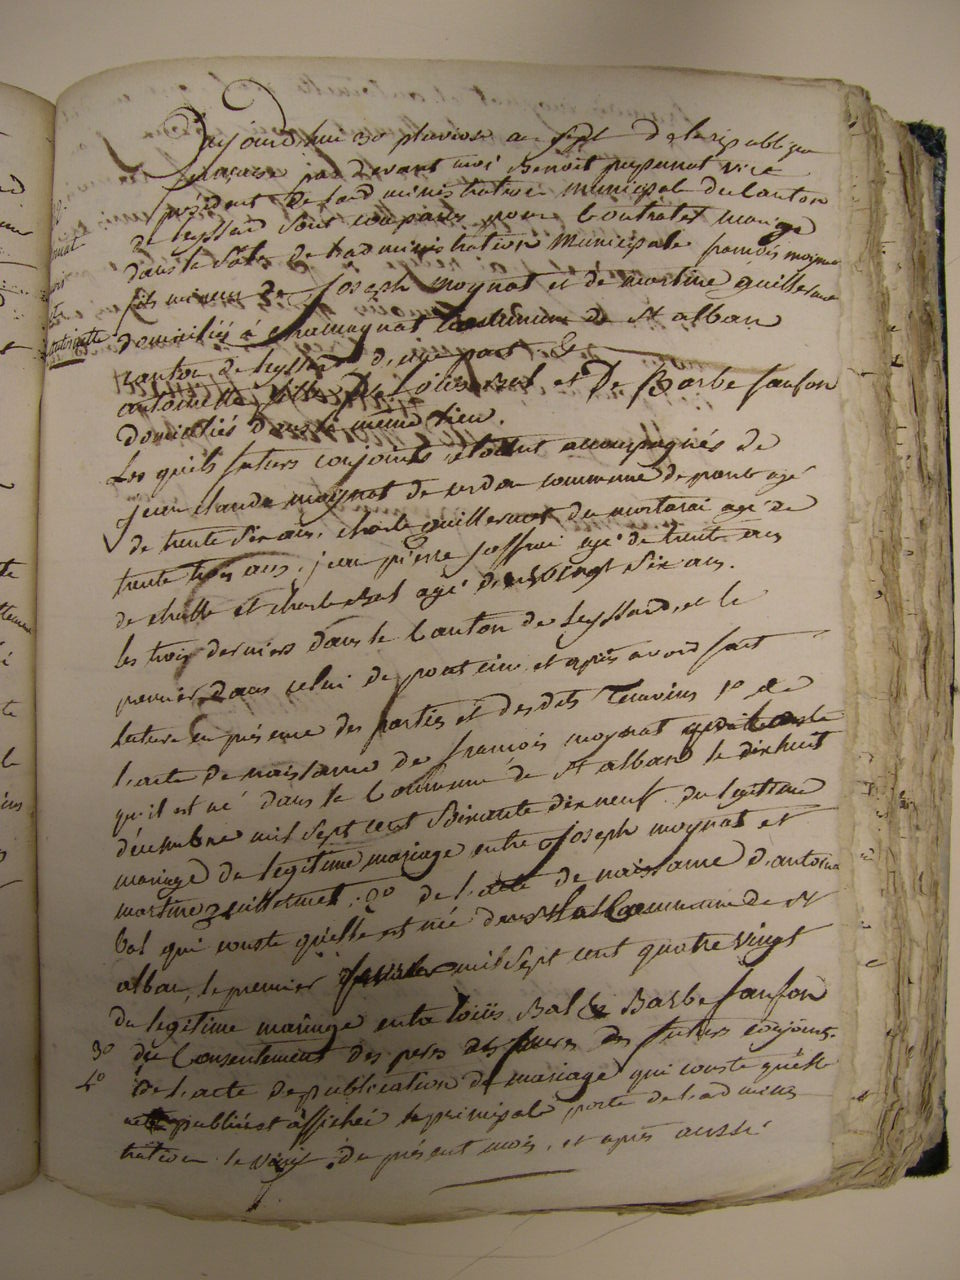 Aujourd'hui 30 pluviose an sept de la republique
française par devant moi Benoit vice
président de l'administration municipal du Canton
de Leyssard sont comparus pour Contrater mariage
dans la Salle de l'administration Municipale francois moynat
fils mineur de Joseph moynat et de martine guillermet
domiciliés à chamagnat Commune de St alban
canton de Leyssard d'une part &
antoinette fille de Loüis Bal et De Barbe sanfon
Domiciliés dans le même lieu.
Les quels futurs conjoints etoient accompagnés de
jean claude moynat de cerdon commune de agé
de trente six ans, charle guillermet du mortarai age de
trente trois ans, jean pierre joffrai agé de trente ans
de challe et charle Bal agé de vingt six ans.
les trois derniers dans le Canton de Leyssard, et le
premier dans celui de pont ein, et après avoir fait
lecture en présence des parties et des dits Temoins 1° de
l'acte de naissance de francois moynat qui conste
qu'il est né dans la Commune de St alban le dix huit
décembre mil sept cent soixante dix neuf du legitime
mariage de legitime mariage entre Joseph moynat et
martine guillermet, 2° de l'acte de naissance d'antoine
bal qui conste qu'elle est née dans la Commune de St
alban, le premier mil sept cent quatre vingt
du legitime mariage entre loüis Bal & Barbe sanfon
3° du Consentement des peres des futurs conjoints.
4° de l'acte de publication de mariage qui conste qu'elle
publiée et affichée la principale porte de l'adminis
tration le vingt du présent mois, et après aussi